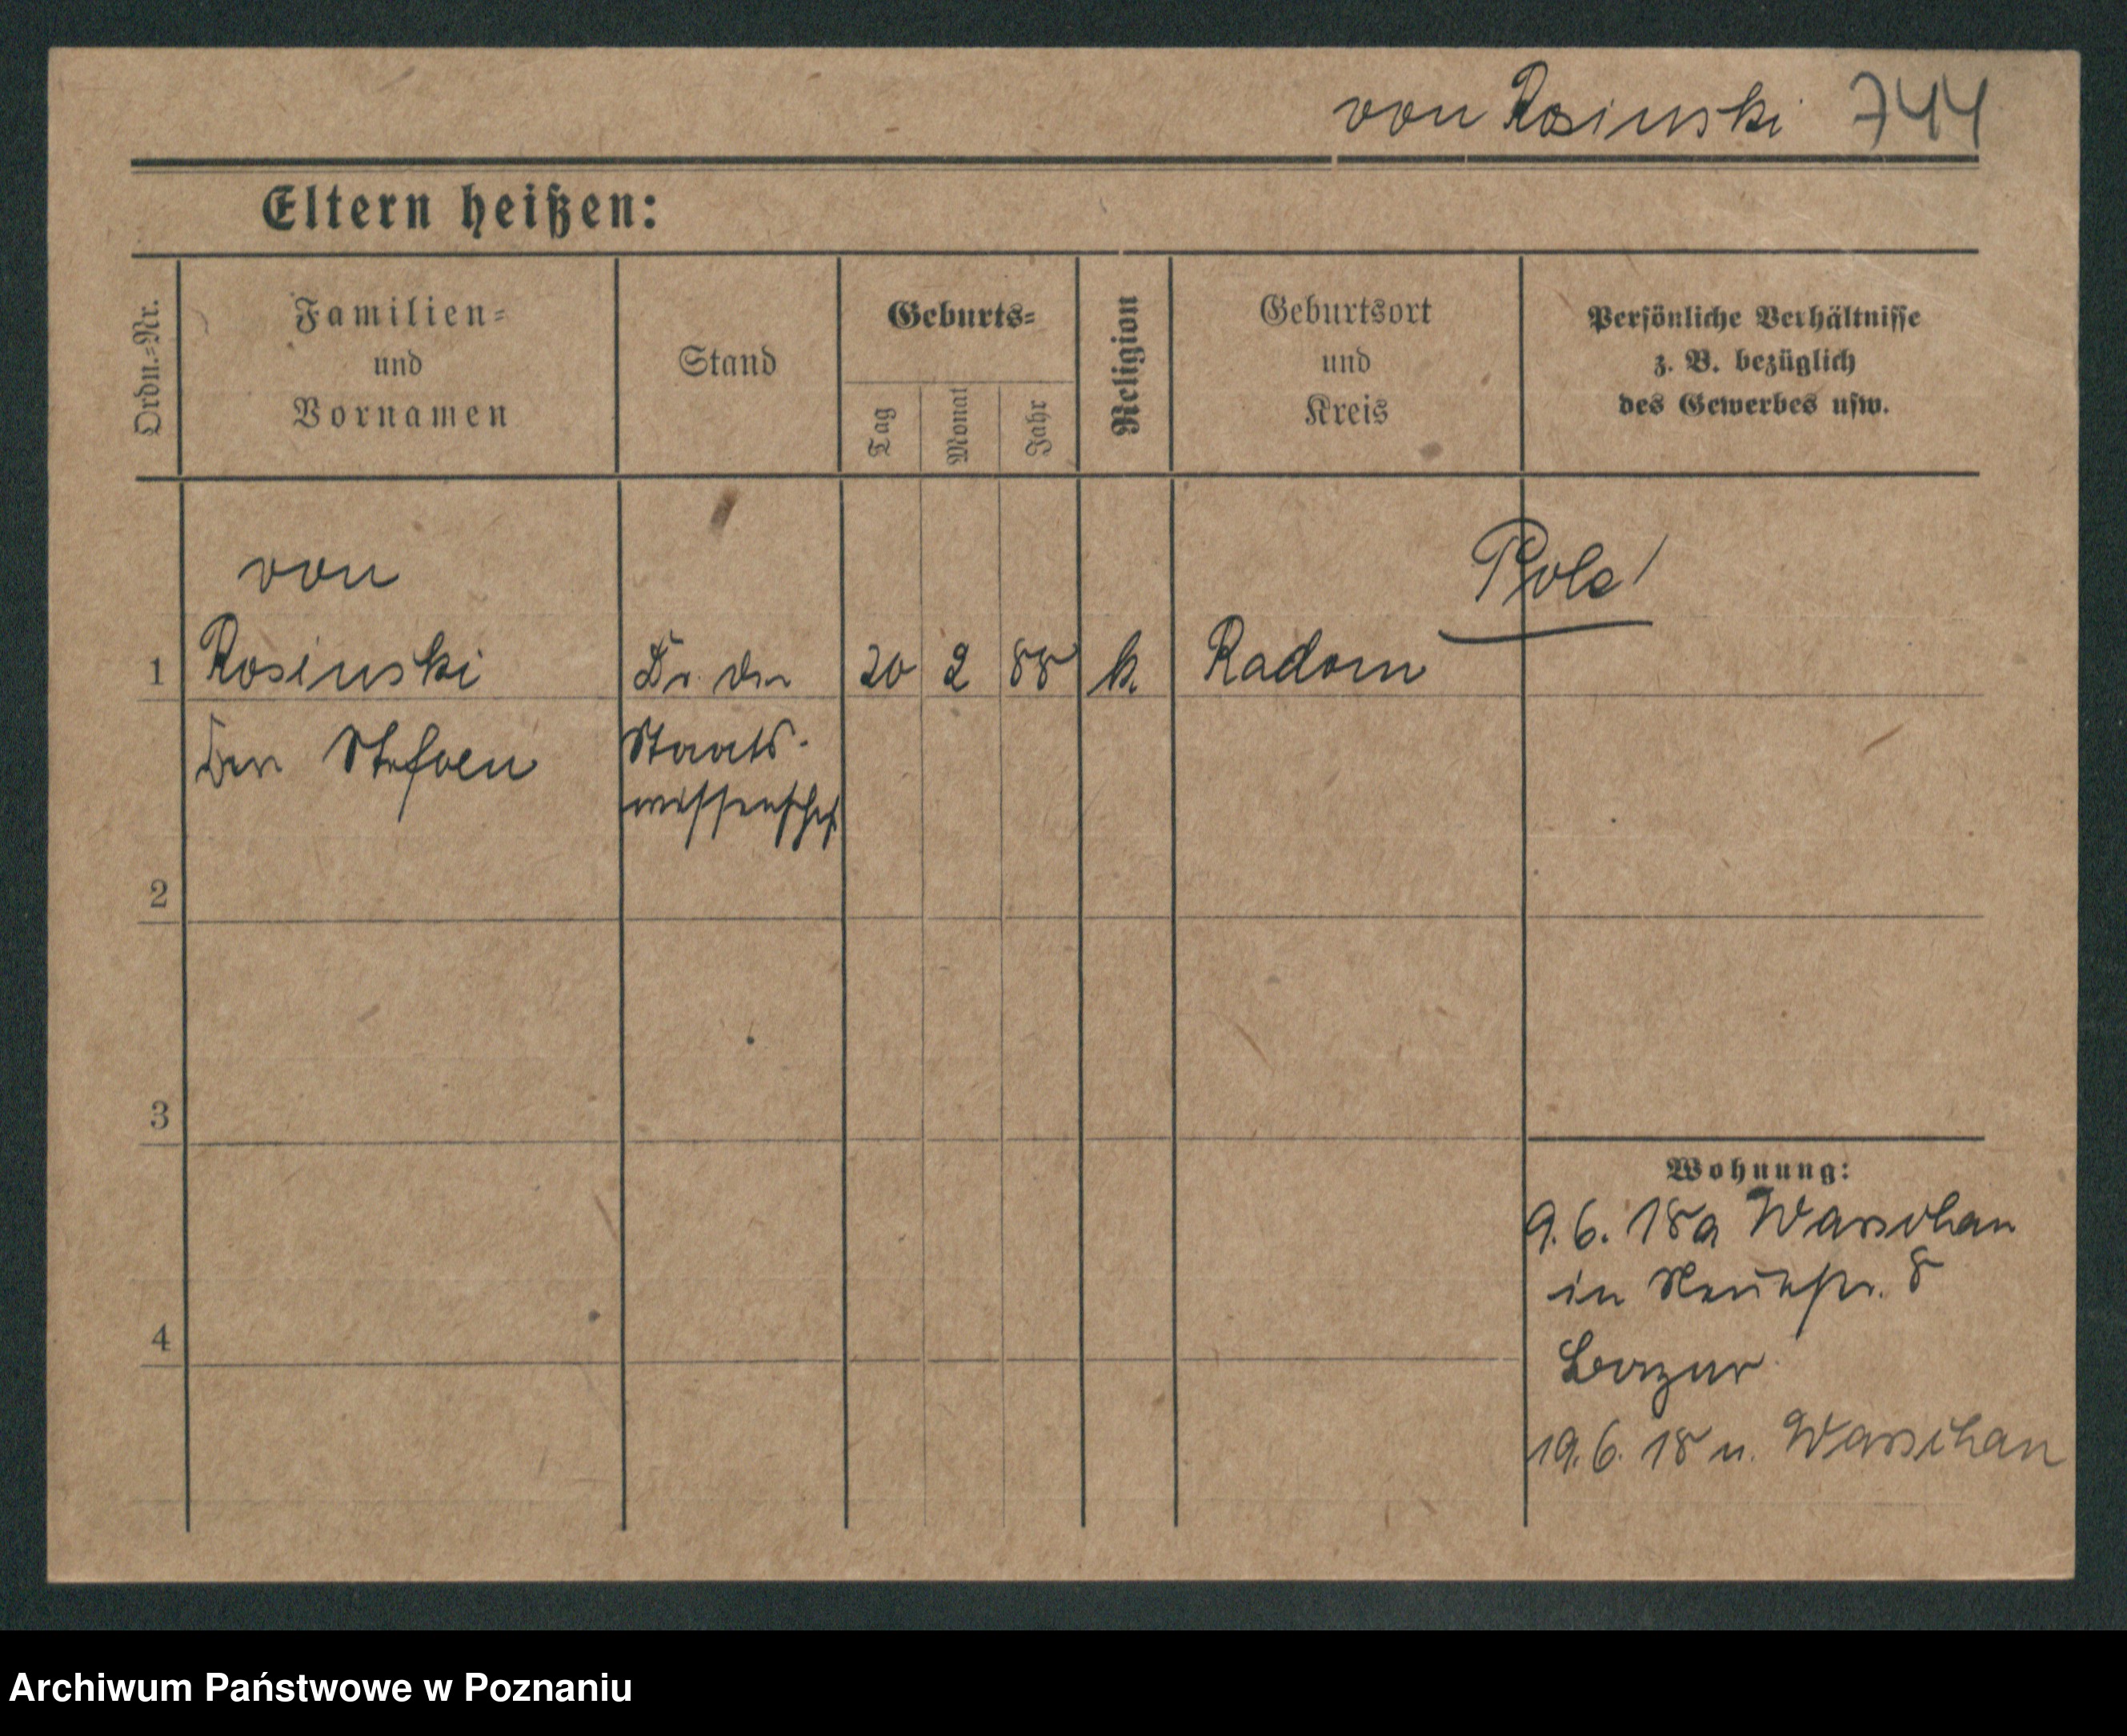 von Rosinski 744
Eltern heißen:
Ordn.-Nr.
Familien-
und
Vornamen
Stand
Geburts-
Tag
Monat
Jahr
Religion
Geburtsort
und
Kreis
Persönliche Verhältnisse
z. B. bezüglich
des Gewerbes usw.
von
Pole!
1 Rosinski Dr. der 20 2 88 k. Radom
Stefan
Staats-
wissensch.
2
3
4
Wohnung:
9.6.18 a Warschau
in 8
Bazar
19.6.18 n. Warschau
Archiwum Państwowe w Poznaniu